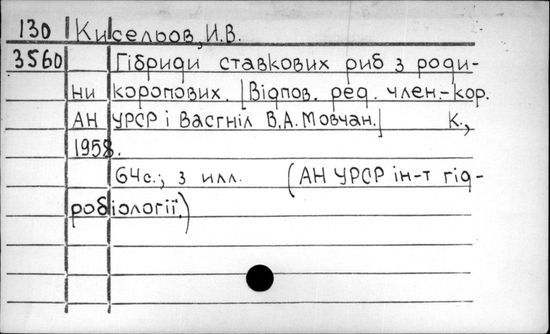 130 Кисельов, И.В.
3560 Гібриди ставкових риб з роди-
ни коропових. [Відпов. ред. член.-кор.
АН УРСР і Васгніл В.А. Мовчан.] К.,
1958.
64с.; з илл. (АН УРСР ін-т гід-
робіології.)